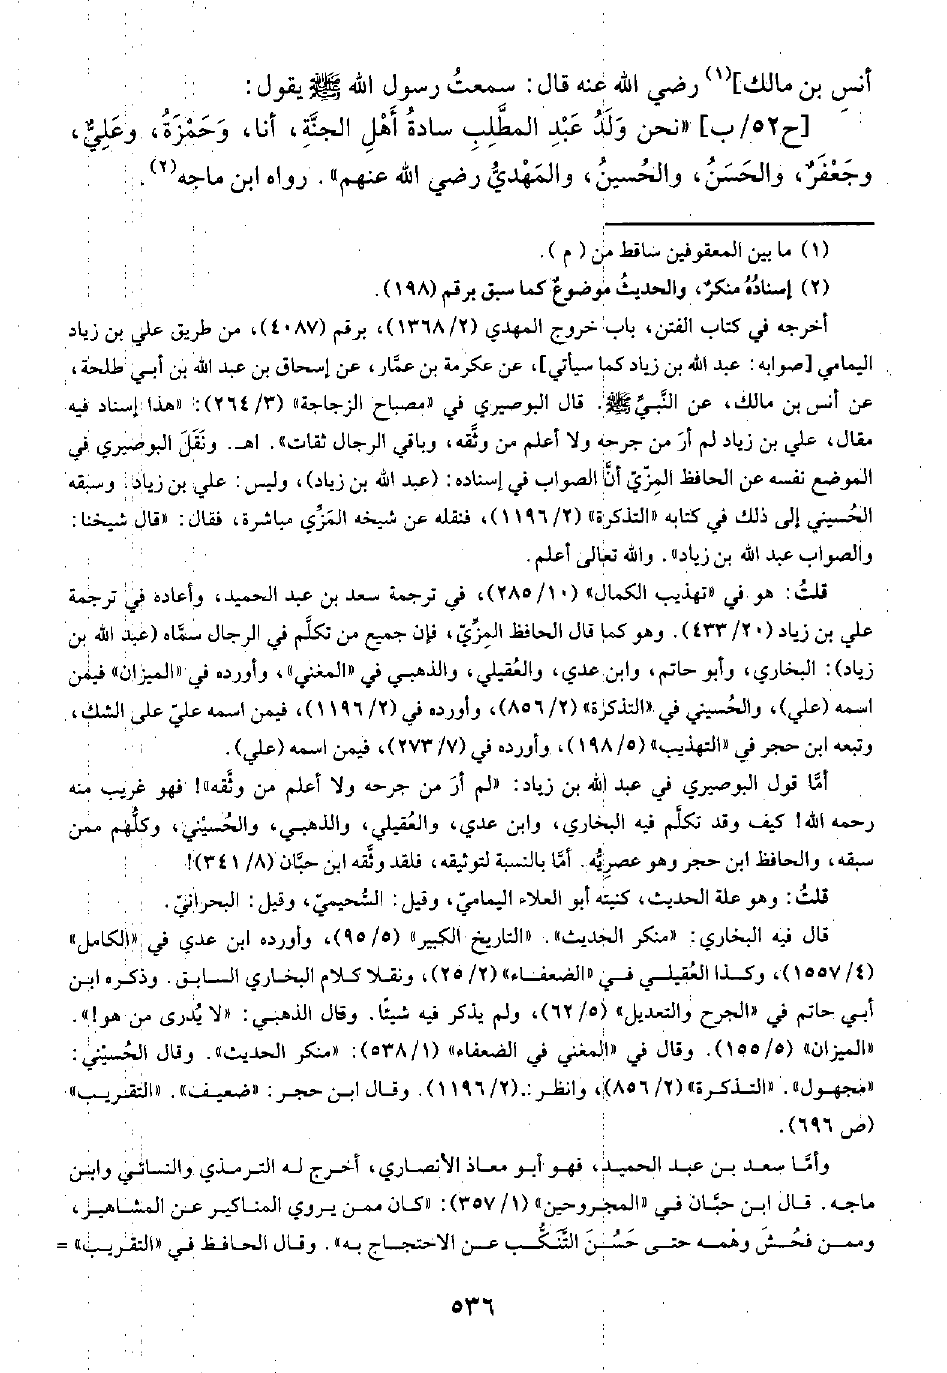 أنسِ بن مالك]⁽¹⁾ رضي الله عنه قال: سمعتُ رسول الله ﷺ يقول:
[ح٥٢/ب] «نحن وَلَدُ عَبْدِ المطَّلِبِ سادةُ أَهْلِ الجنَّةِ، أنا، وَحَمْزَةُ، وعَلِيٌّ،
وجَعْفَرٌ، والحَسَنُ، والحُسينُ، والمَهْديُّ رضي الله عنهم». رواه ابن ماجه⁽²⁾.
(١) ما بين المعقوفين ساقط من (م).
(٢) إسنادُهُ منكرٌ، والحديثُ موضوعٌ كما سبق برقم (١٩٨).
أخرجه في كتاب الفتن، باب خروج المهدي (١٣٦٨/٢)، برقم (٤٠٨٧)، من طريق علي بن زياد
اليمامي [صوابه: عبد الله بن زياد كما سيأتي]، عن عكرمة بن عمَّار، عن إسحاق بن عبد الله بن أبي طلحة،
عن أنس بن مالك، عن النَّبيِّ ﷺ. قال البوصيري في «مصباح الزجاجة» (٢٦٤/٣): «هذا إسناد فيه
مقال، علي بن زياد لم أرَ من جرحه ولا أعلم من وثَّقه، وباقي الرجال ثقات». اهـ. ونَقَلَ البوصيري في
الموضع نفسه عن الحافظ المِزّيّ أنَّ الصواب في إسناده: (عبد الله بن زياد)، وليس: علي بن زياد. وسبقه
الحُسيني إلى ذلك في كتابه «التذكرة» (١١٩٦/٢)، فنقله عن شيخه المَزِّي مباشرة، فقال: «قال شيخنا:
والصواب عبد الله بن زياد». والله تعالى أعلم.
قلتُ: هو في «تهذيب الكمال» (٢٨٥/١٠)، في ترجمة سعد بن عبد الحميد، وأعاده في ترجمة
علي بن زياد (٤٣٣/٢٠). وهو كما قال الحافظ المِزّيّ، فإن جميع من تكلَّم في الرجال سمَّاه (عبد الله بن
زياد): البخاري، وأبو حاتم، وابن عدي، والعُقيلي، والذهبي في «المغني»، وأورده في «الميزان» فيمن
اسمه (علي)، والحُسيني في «التذكرة» (٨٥٦/٢)، وأورده في (١١٩٦/٢)، فيمن اسمه عليّ على الشك،
وتبعه ابن حجر في «التهذيب» (١٩٨/٥)، وأورده في (٢٧٣/٧)، فيمن اسمه (علي).
أمَّا قول البوصيري في عبد الله بن زياد: «لم أرَ من جرحه ولا أعلم من وثَّقه»! فهو غريب منه
رحمه الله! كيف وقد تكلَّم فيه البخاري، وابن عدي، والعُقيلي، والذهبي، والحُسيْني، وكلُّهم ممن
سبقه، والحافظ ابن حجر وهو عصريُّه. أمَّا بالنسبة لتوثيقه، فلقد وثَّقه ابن حبَّان (٣٤١/٨)!.
قلتُ: وهو علة الحديث، كنيته أبو العلاء اليماميّ، وقيل: السُّحيميّ، وقيل: البحرانيّ.
قال فيه البخاري: «منكر الحديث». «التاريخ الكبير» (٩٥/٥)، وأورده ابن عدي في «الكامل»
(١٥٥٧/٤)، وكذا العُقيلي في «الضعفاء» (٢٥/٢)، ونقلا كلام البخاري السابق. وذكره ابن
أبي حاتم في «الجرح والتعديل» (٦٢/٥)، ولم يذكر فيه شيئًا. وقال الذهبي: «لا يُدرى من هو!».
«الميزان» (١٥٥/٥). وقال في «المغني في الضعفاء» (٥٣٨/١): «منكر الحديث». وقال الحُسيْني:
«مجهول». «التذكرة» (٨٥٦/٢)، وانظر: (١١٩٦/٢). وقال ابن حجر: «ضعيف». «التقريب»
(ص ٦٩٦).
وأمَّا سعد بن عبد الحميد، فهو أبو معاذ الأنصاري، أخرج له الترمذي والنسائي وابن
ماجه. قال ابن حبَّان في «المجروحين» (٣٥٧/١): «كان ممن يروي المناكير عن المشاهير،
وممن فَحُشَ وهْمه حتى حَسُنَ التَّنكُّب عن الاحتجاج به». وقال الحافظ في «التقريب» =
٥٣٦